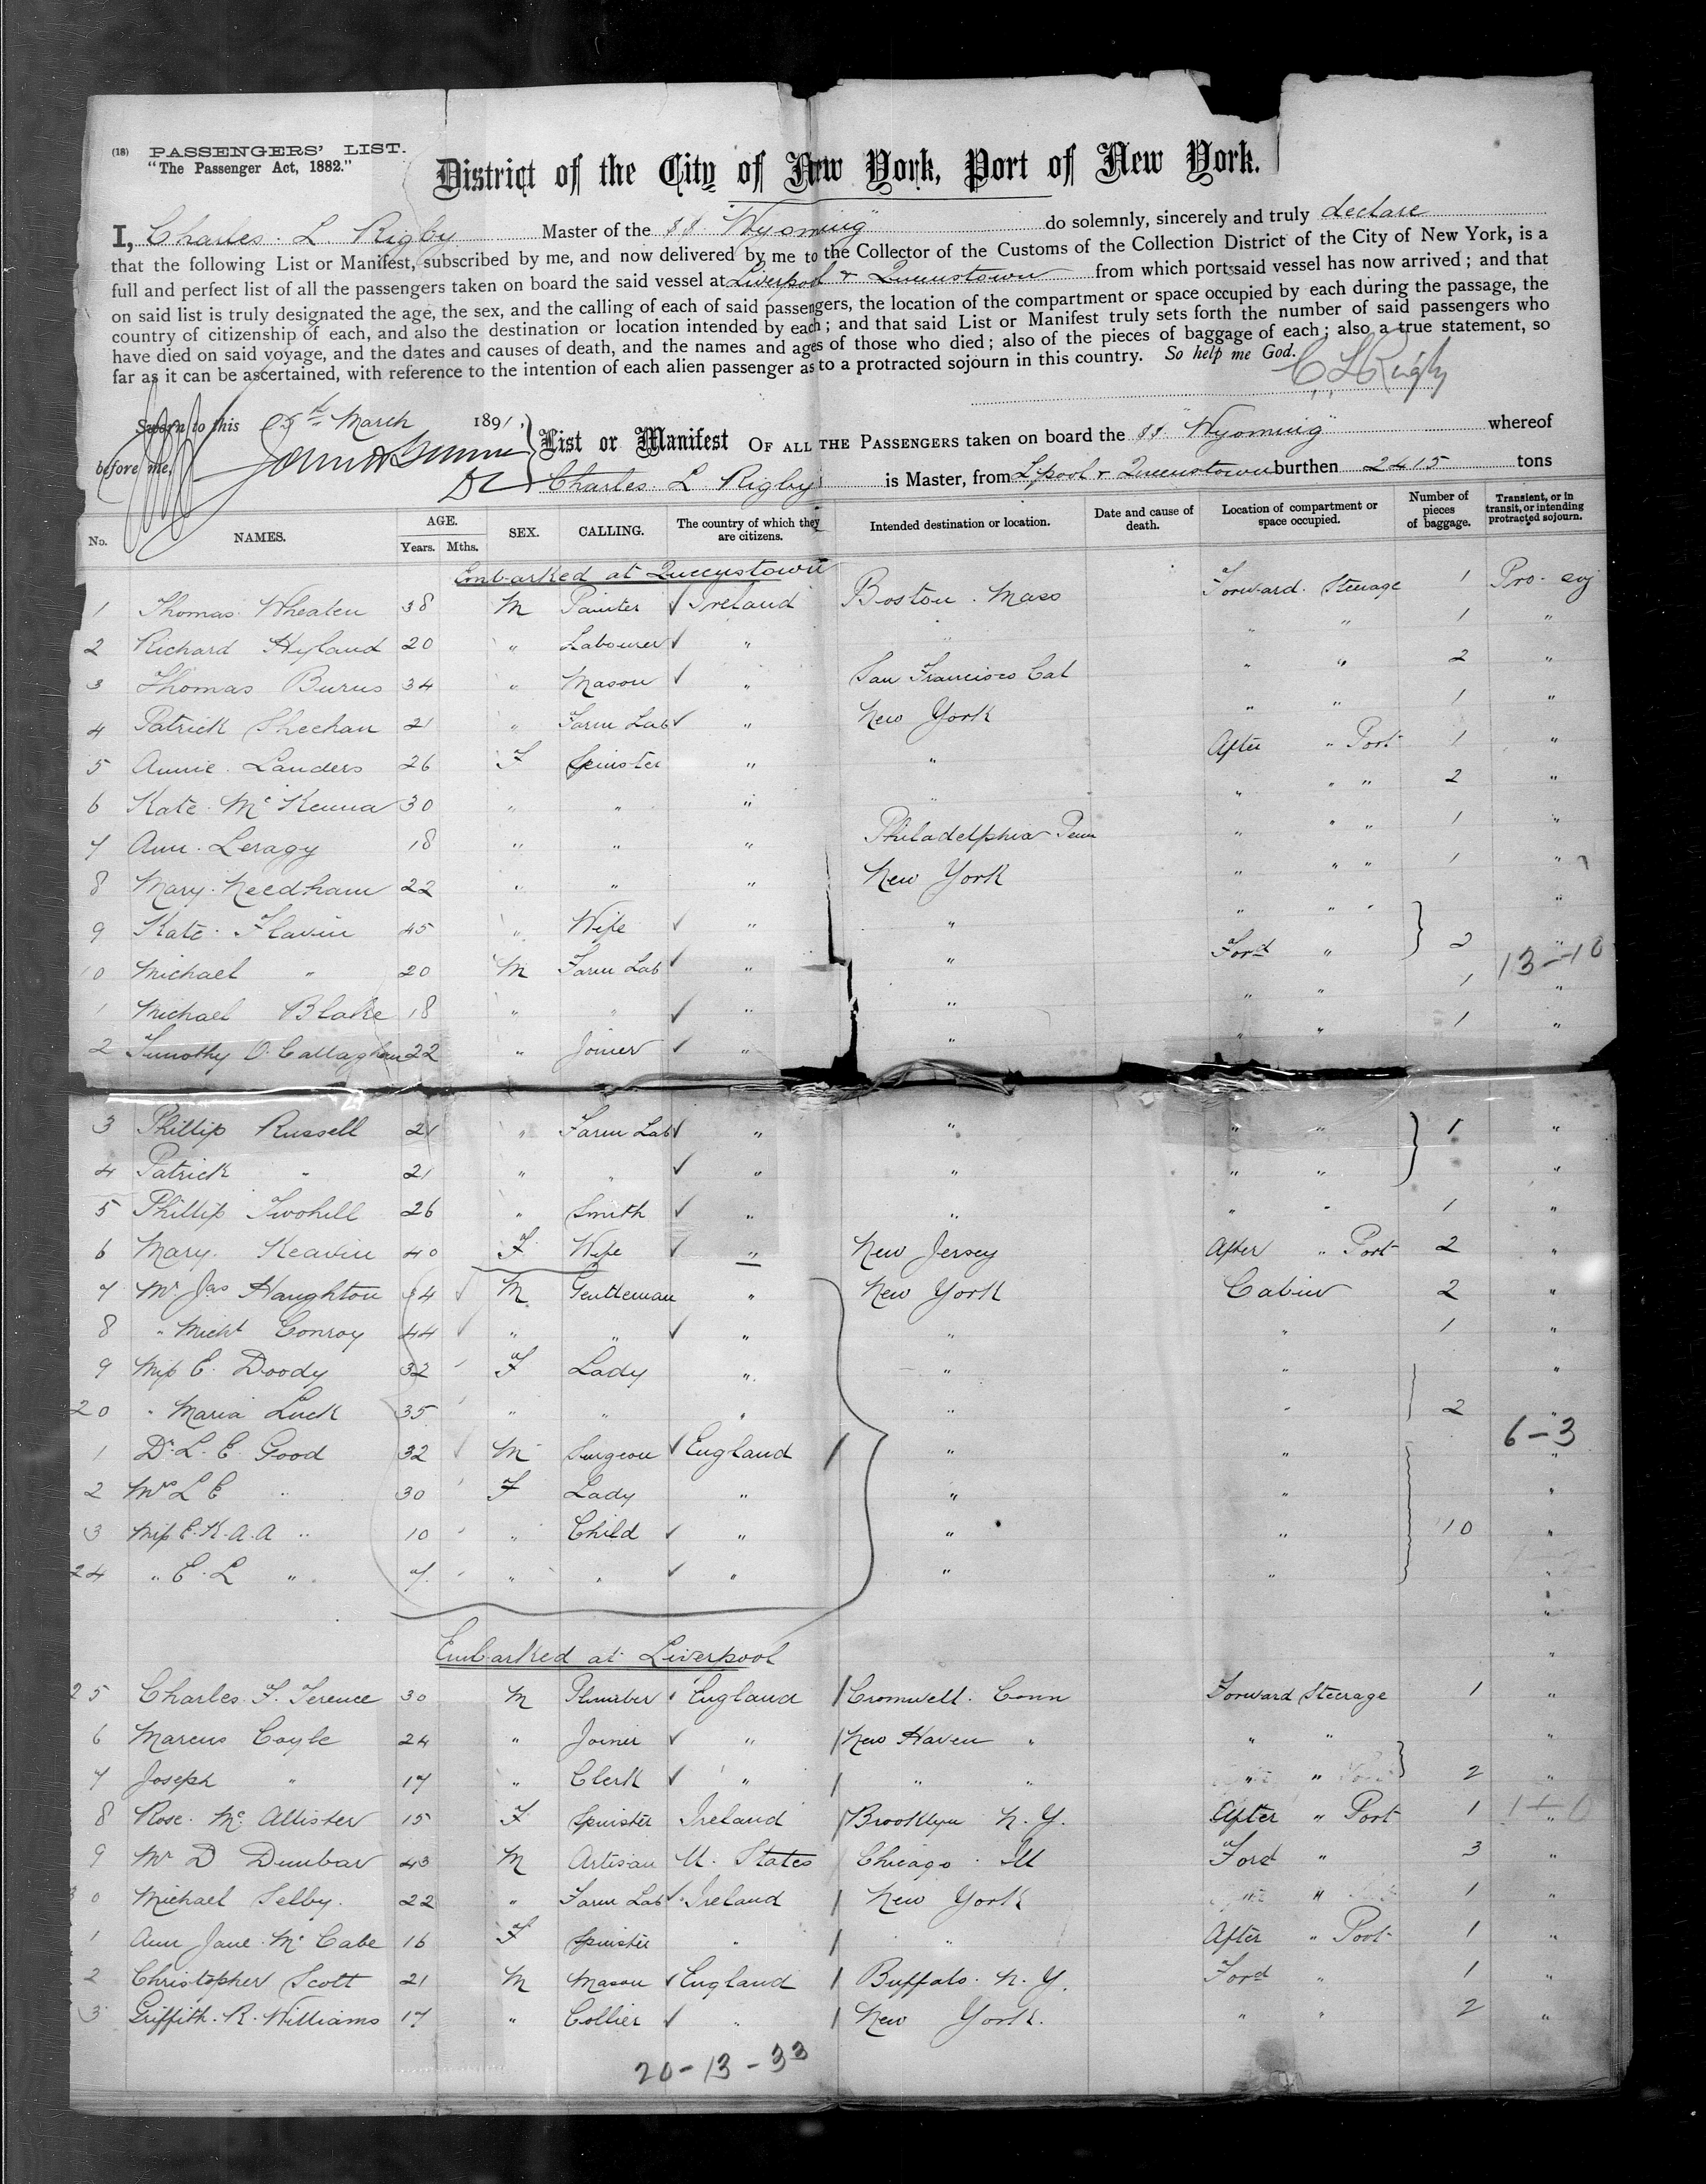 (18) PASSENGERS' LIST.
"The Passenger Act, 1882."
District of the City of New York, Port of New York.
I, Charles L. Rigby Master of the SS "Wyoming" do solemnly, sincerely and truly declare
that the following List or Manifest, subscribed by me, and now delivered by me to the Collector of the Customs of the Collection District of the City of New York, is a
full and perfect list of all the passengers taken on board the said vessel at Liverpool & Queenstown from which ports said vessel has now arrived; and that
on said list is truly designated the age, the sex, and the calling of each of said passengers, the location of the compartment or space occupied by each during the passage, the
country of citizenship of each, and also the destination or location intended by each; and that said List or Manifest truly sets forth the number of said passengers who
have died on said voyage, and the dates and causes of death, and the names and ages of those who died; also of the pieces of baggage of each; also a true statement, so
far as it can be ascertained, with reference to the intention of each alien passenger as to a protracted sojourn in this country. So help me God.
C. L. Rigby
Sworn to this March 1891,
before me,
List or Manifest OF ALL THE PASSENGERS taken on board the SS "Wyoming" whereof
Charles L Rigby is Master, from L'pool & Queenstown burthen 2415 tons
No. NAMES. AGE. Years. Mths. SEX. CALLING. The country of which they are citizens. Intended destination or location. Date and cause of death. Location of compartment or space occupied. Number of pieces of baggage. Transient, or in transit, or intending protracted sojourn.
Embarked at Queenstown
1 Thomas Wheaten 38 M Painter ✓ Ireland Boston. Mass Forward. Steerage 1 Pro- soj
2 Richard Hyland 20 " Labourer ✓ " " " " 1 "
3 Thomas Burns 34 " Mason ✓ " San Francisco Cal " " 2 "
4 Patrick Sheehan 21 " Farm Lab ✓ " New York " " 1 "
5 Annie Landers 26 F Spinster " " After " Port 1 "
6 Kate McKenna 30 " " " " " " " 2 "
7 Ann Leragy 18 " " " Philadelphia Penn " " " 1 "
8 Mary Needham 22 " " " New York " " " 1 "
9 Kate Flavin 45 " Wife ✓ " " " " " "
10 Michael " 20 M Farm Lab ✓ " " Ford " 2 "
13-10
1 Michael Blake 18 " " ✓ " " " " 1 "
2 Timothy O'Callaghan 22 " Joiner ✓ " " " " 1 "
3 Phillip Russell 21 " Farm Lab ✓ " " " " 1 "
4 Patrick " 21 " " ✓ " " " " "
5 Phillip Twohill 26 " Smith ✓ " " " " 1 "
6 Mary Keavin 40 F Wife ✓ " New Jersey After " Port 2 "
7 Mr Jas Haughton 54 ✓ M Gentleman " New York Cabin 2 "
8 " Michl Conroy 44 ✓ " " ✓ " " " 1 "
9 Miss E. Doody 32 F Lady " " " "
20 " Maria Luck 35 " " " " " 2 "
6-3
1 Dr. L. E. Good 32 ✓ M Surgeon ✓ England " " "
2 Mrs L E " 30 F Lady " " " "
3 Miss E. K. A. A " 10 " Child ✓ " " " 10 "
24 " E. L " 7 " " ✓ " " " "
Embarked at Liverpool
25 Charles F. Terence 30 M Plumber England Cromwell. Conn Forward Steerage 1 "
6 Marcus Coyle 24 " Joiner ✓ " New Haven " " " "
7 Joseph " 17 " Clerk ✓ " " " " " 2 "
8 Rose McAllister 15 F Spinster Ireland Brooklyn N. Y. After " Port 1 "
9 Mr D Dunbar 43 M Artisan U. States Chicago. Ill Ford " 3 "
30 Michael Selby. 22 " Farm Lab ✓ Ireland New York " " 1 "
1 Ann Jane McCabe 16 F Spinster " " After " Port 1 "
2 Christopher Scott 21 M Mason ✓ England Buffalo. N. Y. Ford " 1 "
3 Griffith. R. Williams 17 " Collier ✓ " New York. " " 2 "
20-13-33